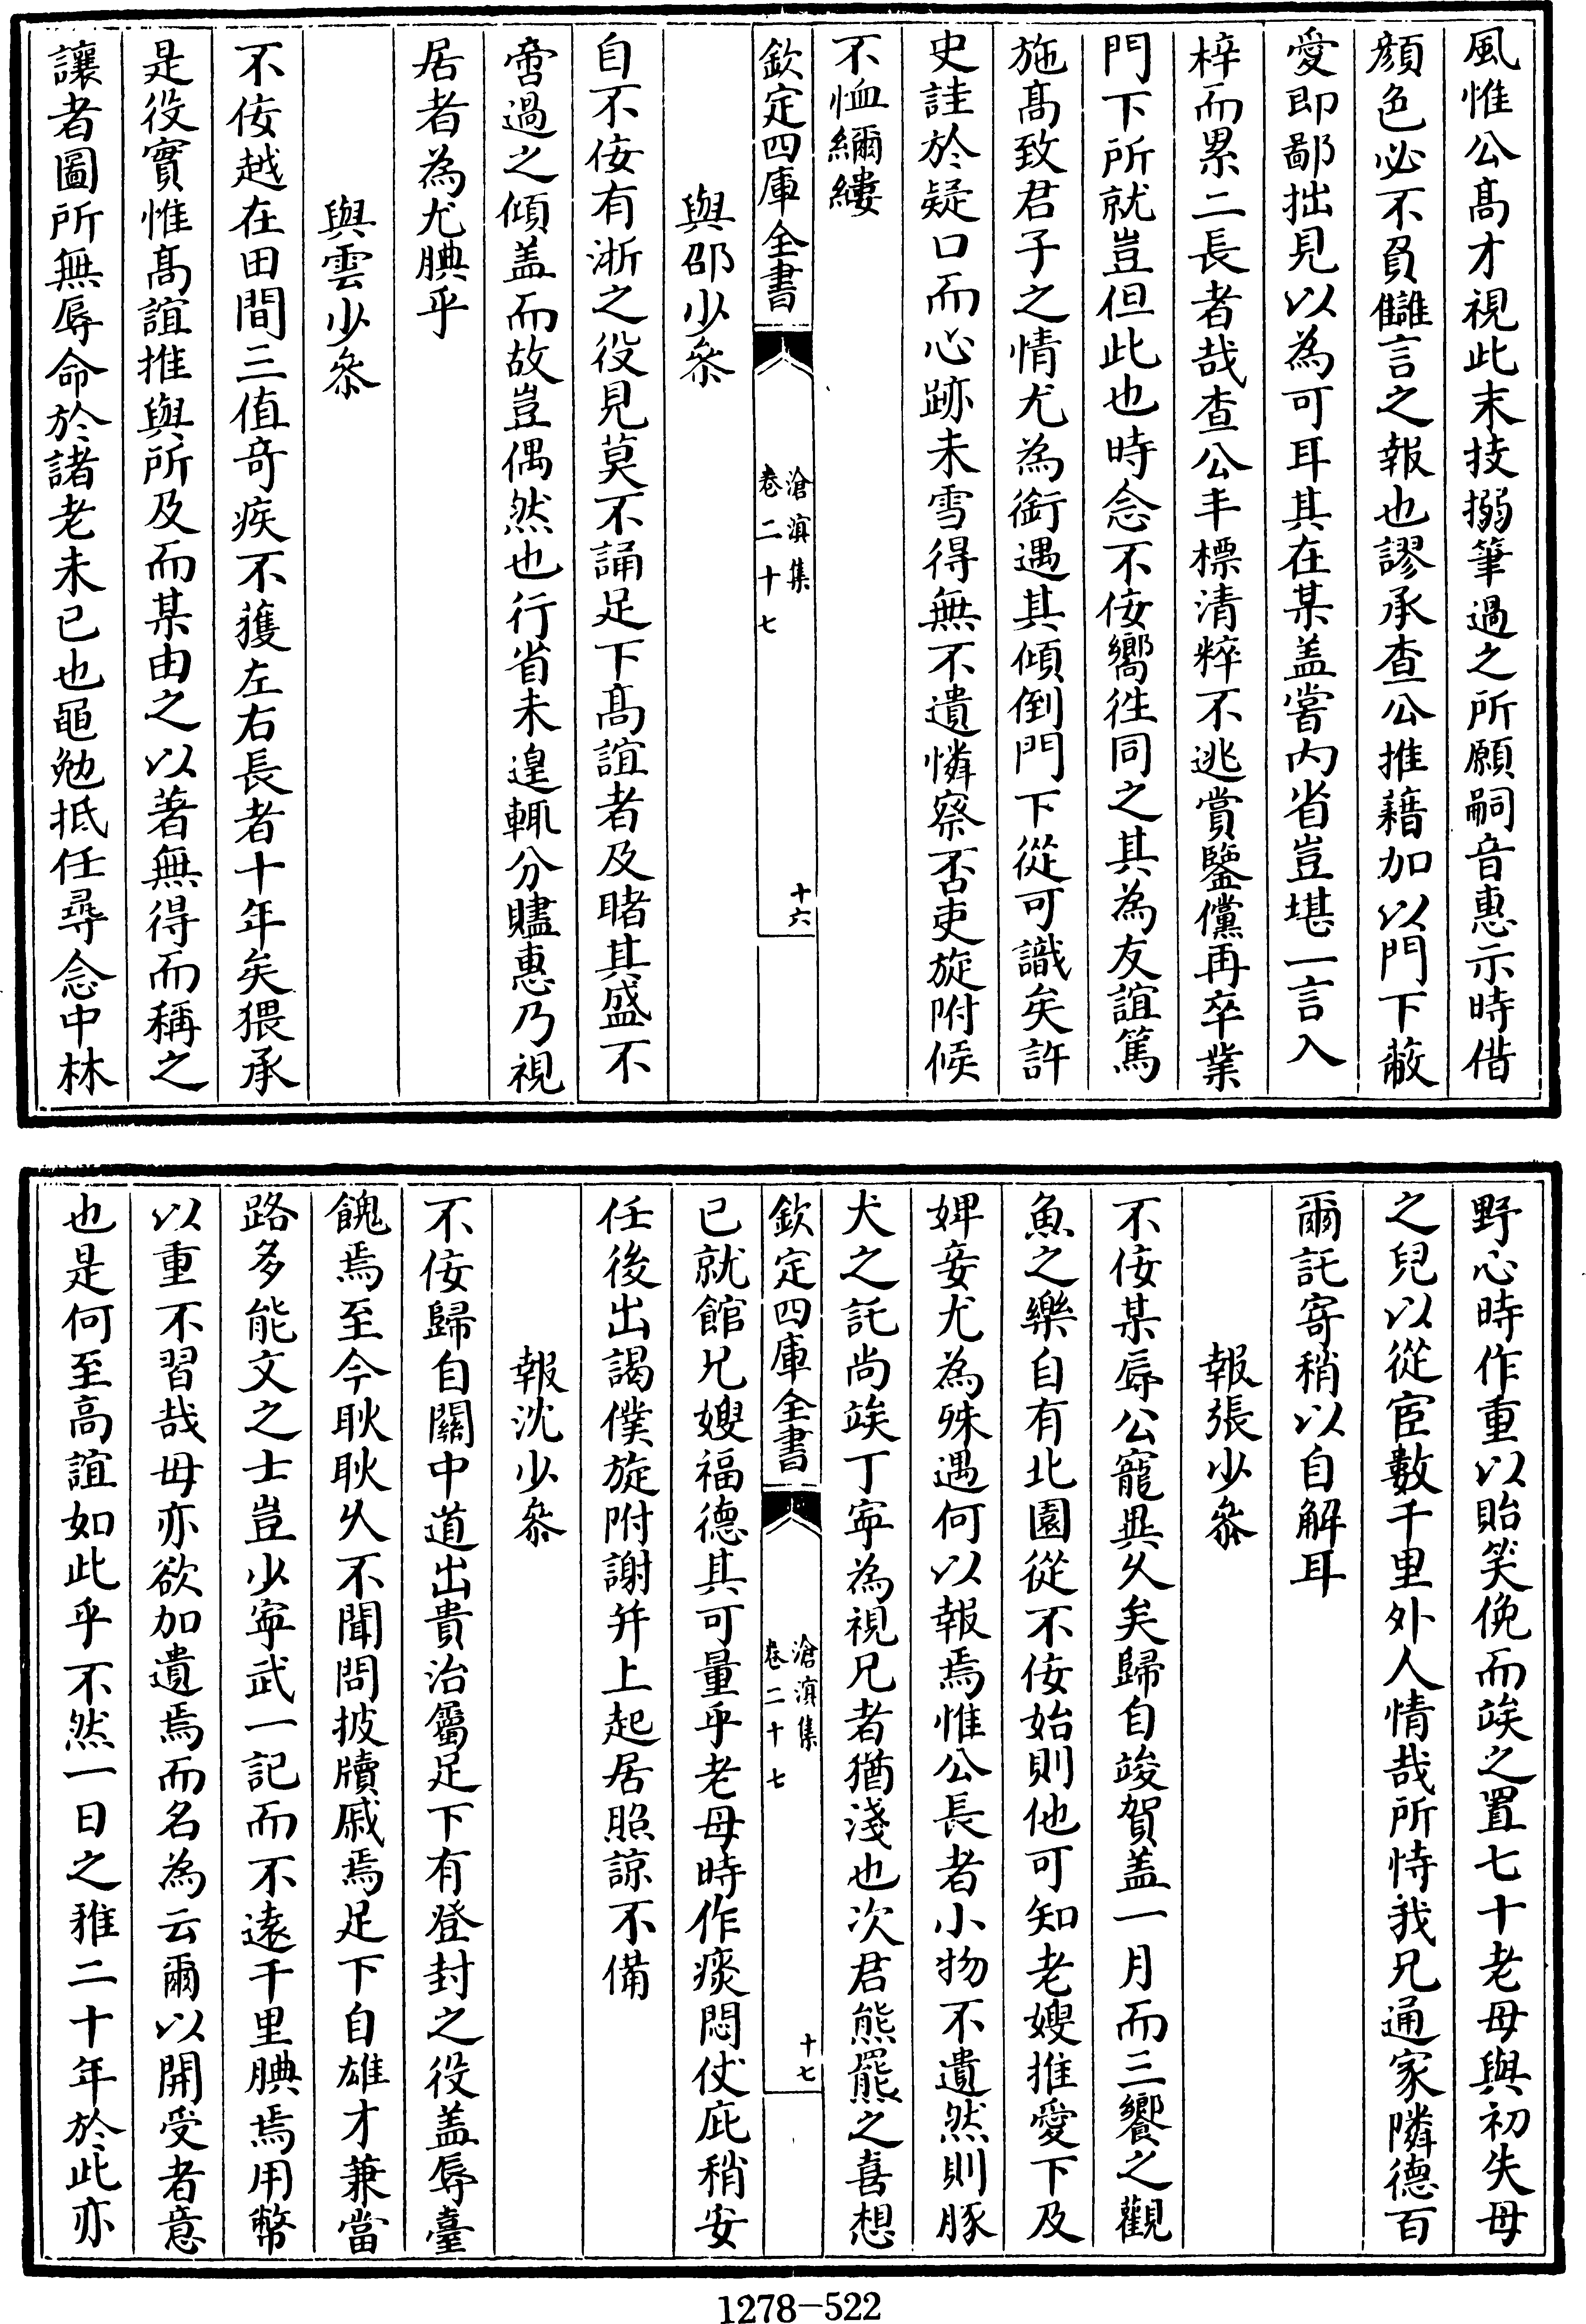 風惟公髙才視此末技搦筆過之所願嗣音惠示時偕
顔色必不負讎言之報也謬承查公推藉加以門下蔽
愛即鄙拙見以為可耳其在某盖嘗内省豈堪一言入
梓而累二長者哉查公丰標清粹不逃賞鑒儻再卒業
門下所就豈但此也時念不佞嚮徃同之其為友誼篤
施髙致君子之情尤為銜遇其傾倒門下從可識矣許
史詿於疑口而心跡未雪得無不遺憐察否吏旋附候
不恤纚縷
欽定四庫全書
滄溟集
卷二十七
十六
與邵少叅
自不佞有浙之役見莫不誦足下髙誼者及睹其盛不
啻過之傾盖而故豈偶然也行省未遑輒分贐惠乃視
居者為尤腆乎
與雲少叅
不佞越在田間三值奇疾不獲左右長者十年矣猥承
是役實惟髙誼推與所及而某由之以著無得而稱之
讓者圖所無辱命於諸老未已也黽勉抵任尋念中林
野心時作重以貽笑俛而竢之置七十老母與初失母
之兒以從宦數千里外人情哉所恃我兄通家隣德百
爾託寄稍以自解耳
報張少叅
不佞某辱公寵與久矣歸自竣賀盖一月而三饗之觀
魚之樂自有北園從不佞始則他可知老嫂推愛下及
婢妾尤為殊遇何以報焉惟公長者小物不遺然則豚
犬之託尚竢丁寧為視兄者猶淺也次君熊羆之喜想
欽定四庫全書
滄溟集
卷二十七
十七
已就館兄嫂福德其可量乎老母時作痰悶仗庇稍安
任後出謁僕旋附謝并上起居照諒不備
報沈少叅
不佞歸自關中道出貴治屬足下有登封之役盖辱臺
餽焉至今耿耿久不聞問披牘戚焉足下自雄才兼當
路多能文之士豈少寧武一記而不逺千里腆焉用幣
以重不習哉毋亦欲加遺焉而名為云爾以開受者意
也是何至高誼如此乎不然一日之雅二十年於此亦
1278—522